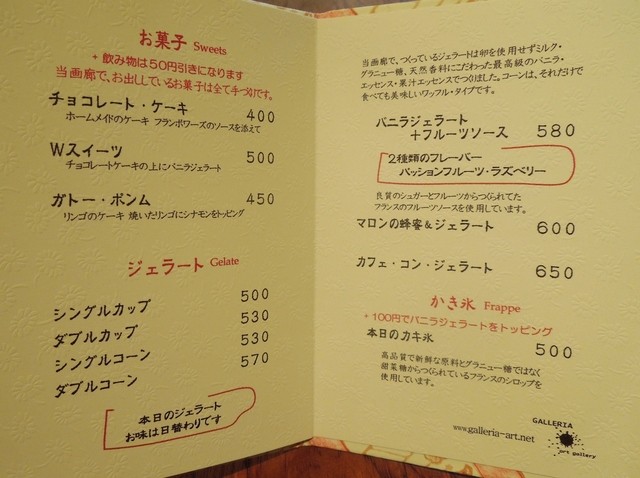 お菓子 Sweets
+ 飲み物は50円引きになります
当画廊で、お出ししているお菓子は全て手づくりです。
チョコレート・ケーキ 400
ホームメイドのケーキ フランボワーズのソースを添えて
Wスイーツ 500
チョコレートケーキの上にバニラジェラート
ガトー・ポンム 450
リンゴのケーキ 焼いたリンゴにシナモンをトッピング
ジェラート Gelate
シングルカップ 500
ダブルカップ 530
シングルコーン 530
ダブルコーン 570
本日のジェラート
お味は日替わりです
当画廊で、つくっているジェラートは卵を使用せずミルク・
グラニュー糖、天然香料にこだわった最高級のバニラ・
エッセンス・果汁エッセンスでつくりました。コーンは、それだけで
食べても美味しいワッフル・タイプです。
バニラジェラート
+フルーツソース 580
2種類のフレーバー
パッションフルーツ・ラズベリー
良質のシュガーとフルーツからつくられてた
フランスのフルーツソースを使用しています。
マロンの蜂蜜&ジェラート 600
カフェ・コン・ジェラート 650
かき氷 Frappe
+100円でバニラジェラートをトッピング
本日のカキ氷 500
高品質で新鮮な原料とグラニュー糖ではなく
甜菜糖からつくられているフランスのシロップを
使用しています。
www.galleria-art.net
GALLERIA
art gallery